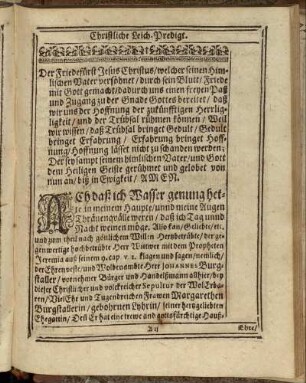 Christliche Leich-Predigt.
Der Friedefürst Jesus Christus/ welcher seinen Him-
lischen Vater versöhnet/ durch sein Blutt/ Friede
mit Gott gemacht/ dadurch uns einen freyen Paß
und Zugang zu der Gnade Gottes bereitet/ daß
wir uns der Hoffnung der zukünfftigen Herrlig-
ligkeit/ und der Trübsal rühmen können/ Weil
wir wissen/ daß Trübsal bringet Gedult/ Gedult
bringet Erfahrung/ Erfahrung bringet Hoff-
nung/ Hoffnung lässet nicht zu schanden werden:
Der sey sampt seinem himlischen Vater/ und Gott
dem Heiligen Geiste gerühmet und gelobet von
nun an/ biß in Ewigkeit/ AMEN.
ACh daß ich Wasser genung het-
te in meinem Haupte/ unnd meine Augen
Thränenqvälle weren/ daß ich Tag unnd
Nacht weinen möge. Also kan/ Geliebte/ etc.
und zum theil nach göttlichem Willen Hertzbetrübte/ der ge-
gen wertige hochbetrübte Herr Wittwer mit dem Propheten
Jeremia auß seinem 9. cap. v. 1. klagen und sagen/ nemlich/
der Ehrenveste/ und Wolbenambte Herr JOHANNES Burg-
staller/ vornehmer Bürger und Handelßmann allhier/ bey
so Christlicher und volckreicher Sepultur der Wol Erba-
ren/ Viel Ehr und Tugendreichen Frawen Margarethen
Burgstallerin/ gebohrnen Lyhrin/ seiner hertzgeliebten
Ehegattin/ Denn Er hat eine trewe und gottsfürchtige Hauß-
A ij
Ehre/